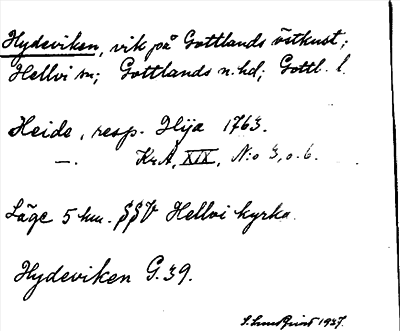 Hydeviken, vik på Gottlands östkust;
Hellvi sn; Gottlands n. hd; Gottl. l.
Heide, resp. Hija 1763.
—. KrA, XIX, N:o 3, o. 6.
Läge 5 km. SSV Hellvi kyrka.
Hydeviken G. 39.
1937.